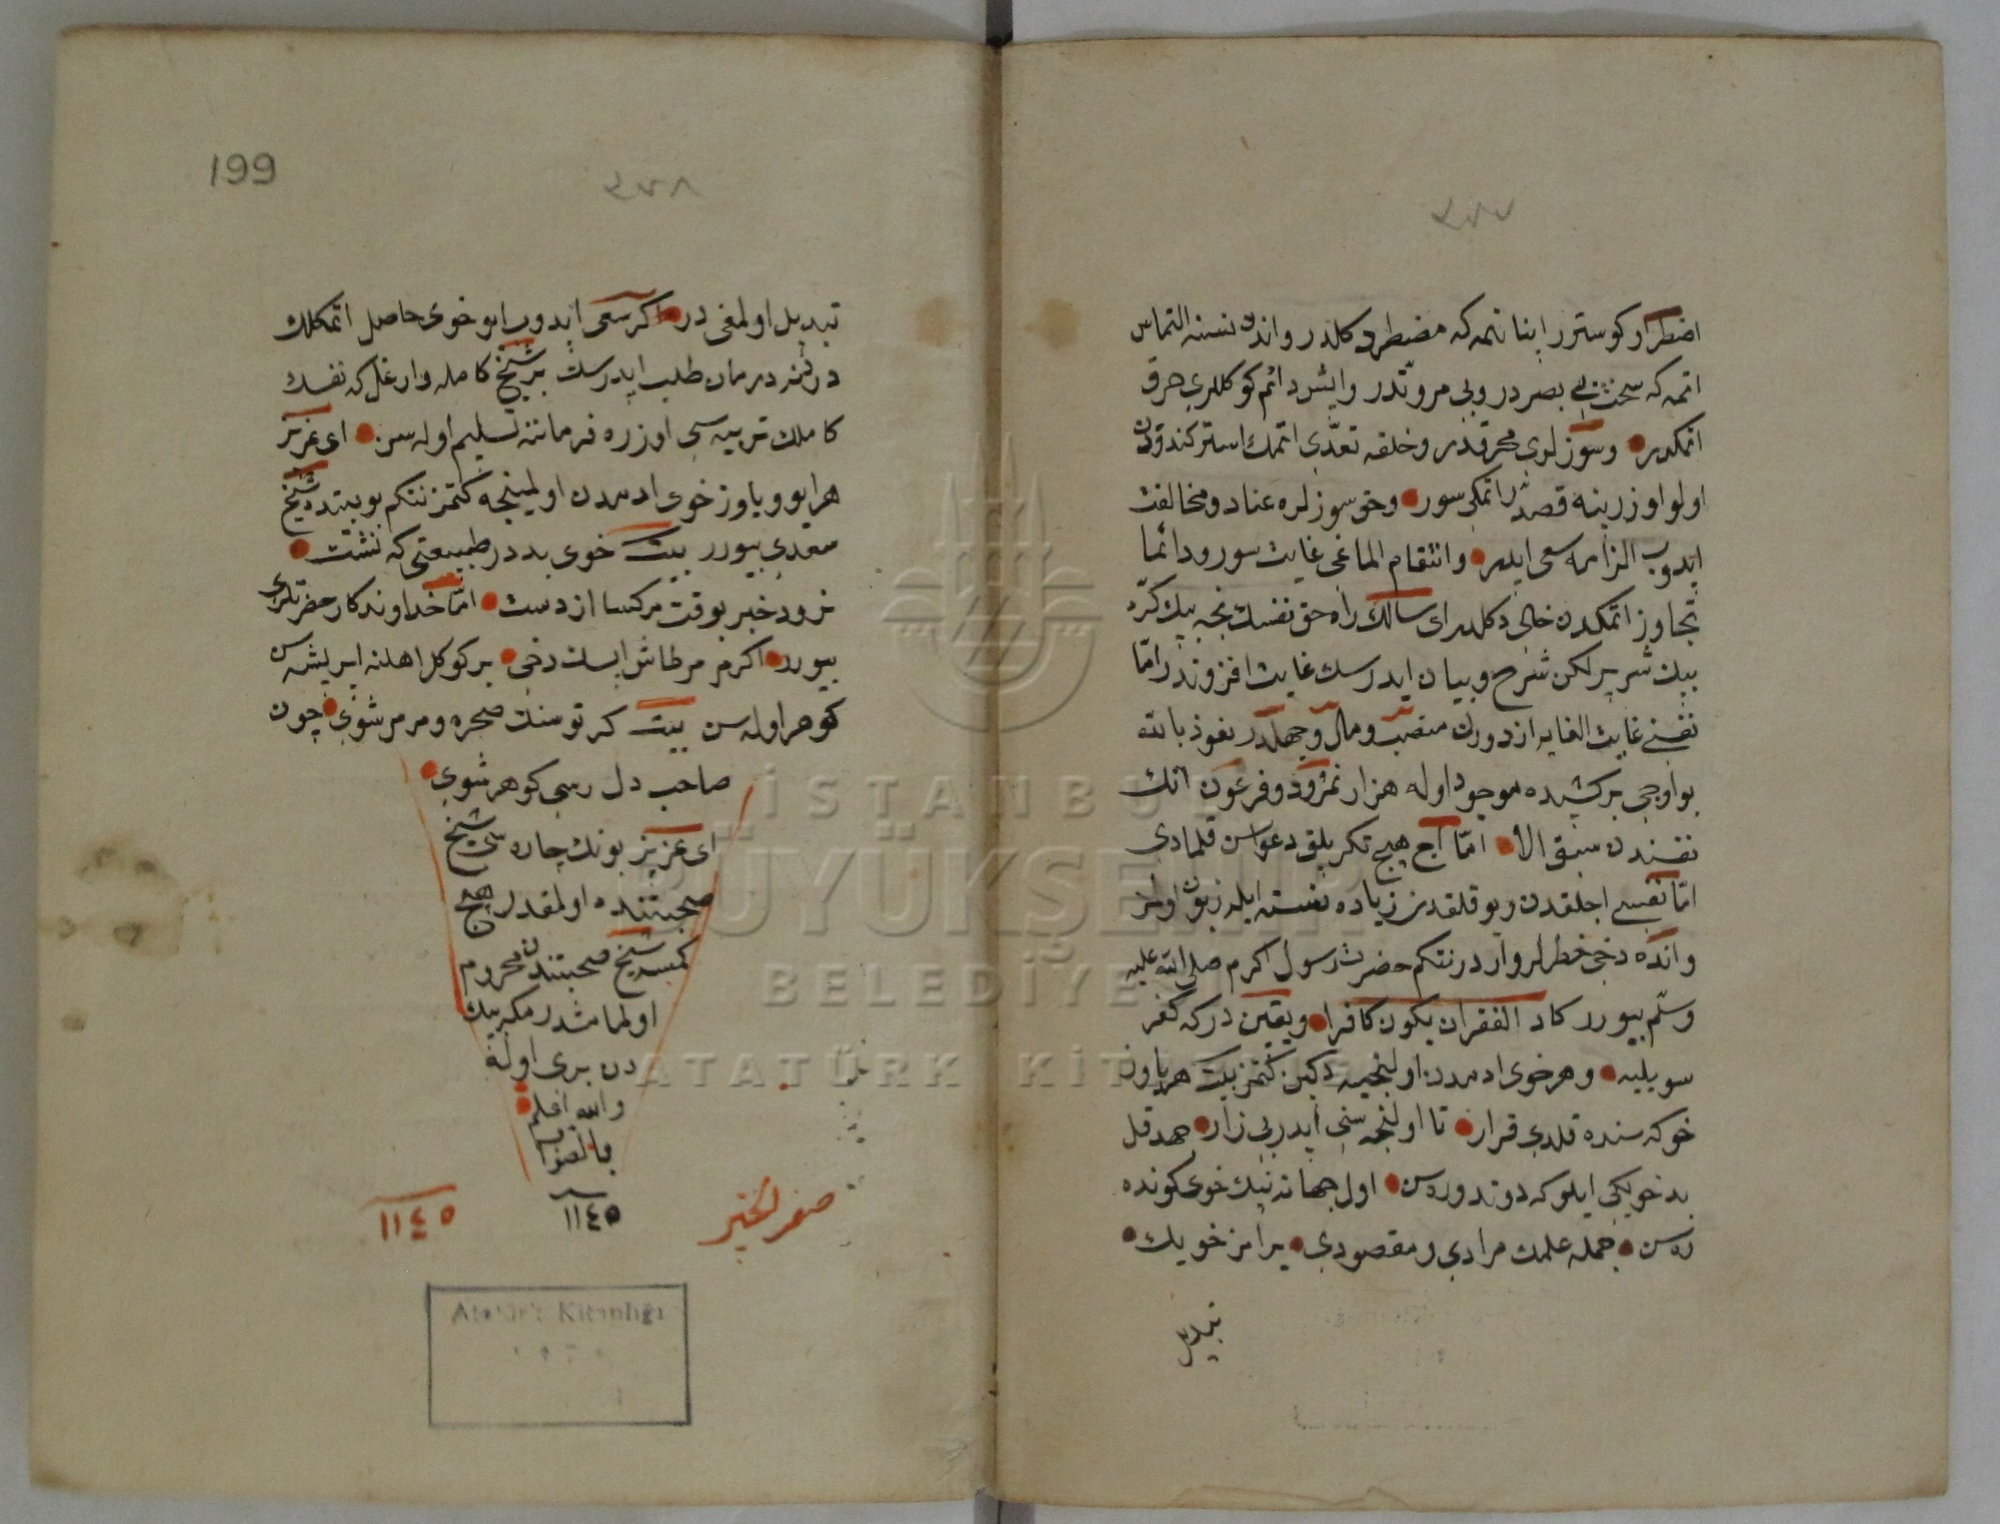 اضطرار كوسترر اينانمه كه مضطر دكلدر واندن نسنه التماس
اتمه كه سخت بى بصردر وبى مروتدر وايشى دائم كوكللرى حرق
اتمكدر وسوزلرى محرقدر وخلقه تعدى اتمك استر كندودن
اولو اوزرينه قصد اتمكى سور وحق سوزلره عناد ومخالفت
ايدوب الزامه سعى ايدر وانتقام الماغى غايت سور ودائما
تجاوز اتمكدن خالى دكلدر اى سالك راه حق نفسك نجه بيك كره
بيك شرى بر لكن شرح وبيان ايدرسك غايت افزوندر اما
نفسى غايت الغايه ازدورن منصب ومال وجهلدر نعوذ بالله
بو اوچى بر كشيده موجود اوله هزار نمرود وفرعون انك
نفسندن سبق الا اما اج هيچ تكريلق دعواسن قلمادى
اما نفسى اجلقدن ويوقلقدن زياده نسنه ايله زبون اولمز
وانده دخى خطرلر واردر نتكم حضرت رسول اكرم صلى الله عليه
وسلم بيورر كاد الفقر ان يكون كافرا ويقين دركه كفر
سويليه وهر خوى ادمدن اولنجيه دكين كتمز بيت هر ياوز
خو كه سنده قلدى قرار تا اولنجه سنى ايدر بى زار جهد قل
بد خويكى ايلوكه دوندوره سن اول جهانه نيك خوى كونده
ره سن جمله علمك مرادى ومقصودى يرامز خويك
تبديل
199
تبديل اولمغى در اكر سعى ايدوب ايو خوى حاصل اتمكلك
دردنه درمان طلب ايدرسك بر شيخ كامله وارغل كه نفسك
كاملك تربيه سى اوزره فرماننه تسليم اوله سن اى عزيز
هر ايو وياوز خوى ادمدن اولمينجه كتمز نتكم بو بيتده شيخ
سعدى بيورر بيت خوى بد در طبيعتى كه نشست
نرود جز بوقت مرك از دست اما خداوندكار حضرتلرى
بيورر اكر مرمر طاش ايسك دخى بر كوكل اهلنه ايريشه سن
كوهر اوله سن بيت كر تو سنك صخره ومرمر شوى چون
صاحب دل رسى كوهر شوى
اى عزيز بونك چاره سى شيخ
صحبتنده اولمقدر هيچ
كمسه شيخ صحبتندن محروم
اولمامشدر مكر بيك
دن برى اوله
والله اعلم
بالصواب
صفر الخير
١١٤٥
١١٤٥
Atatürk Kitaplığı
İSTANBUL
BÜYÜKŞEHİR
BELEDİYESİ
ATATÜRK KİTAPLIĞI